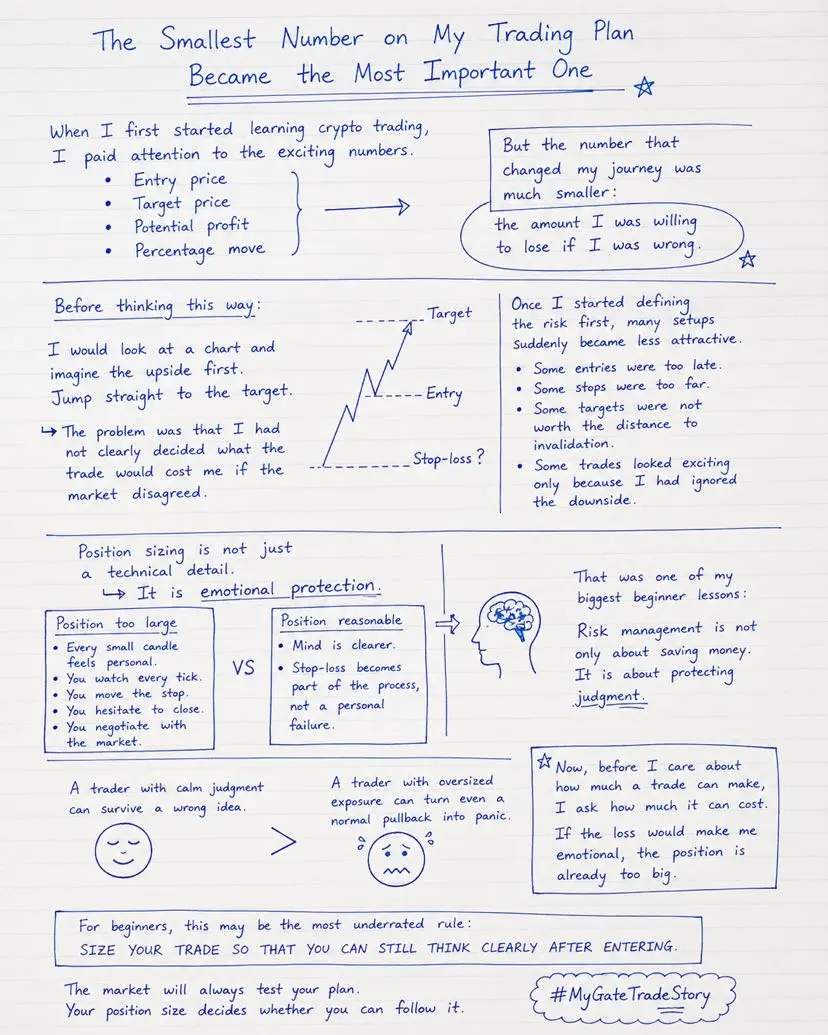 The Smallest Number on My Trading Plan
Became the Most Important One
When I first started learning crypto trading,
I paid attention to the exciting numbers.
• Entry price
• Target price
• Potential profit
• Percentage move
But the number that
changed my journey was
much smaller:
the amount I was willing
to lose if I was wrong.
Before thinking this way:
I would look at a chart and
imagine the upside first.
Jump straight to the target.
The problem was that I had
not clearly decided what the
trade would cost me if the
market disagreed.
Target
Entry
Stop-loss?
Once I started defining
the risk first, many setups
suddenly became less attractive.
• Some entries were too late.
• Some stops were too far.
• Some targets were not
worth the distance to
invalidation.
• Some trades looked exciting
only because I had ignored
the downside.
Position sizing is not just
a technical detail.
It is emotional protection.
Position too large
• Every small candle
feels personal.
• You watch every tick.
• You move the stop.
• You hesitate to close.
• You negotiate with
the market.
VS
Position reasonable
• Mind is clearer.
• Stop-loss becomes
part of the process,
not a personal
failure.
That was one of my
biggest beginner lessons:
Risk management is not
only about saving money.
It is about protecting
judgment.
A trader with calm judgment
can survive a wrong idea.
>
A trader with oversized
exposure can turn even a
normal pullback into panic.
Now, before I care about
how much a trade can make,
I ask how much it can cost.
If the loss would make me
emotional, the position is
already too big.
For beginners, this may be the most underrated rule:
SIZE YOUR TRADE SO THAT YOU CAN STILL THINK CLEARLY AFTER ENTERING.
The market will always test your plan.
Your position size decides whether you can follow it.
#MyGateTradeStory